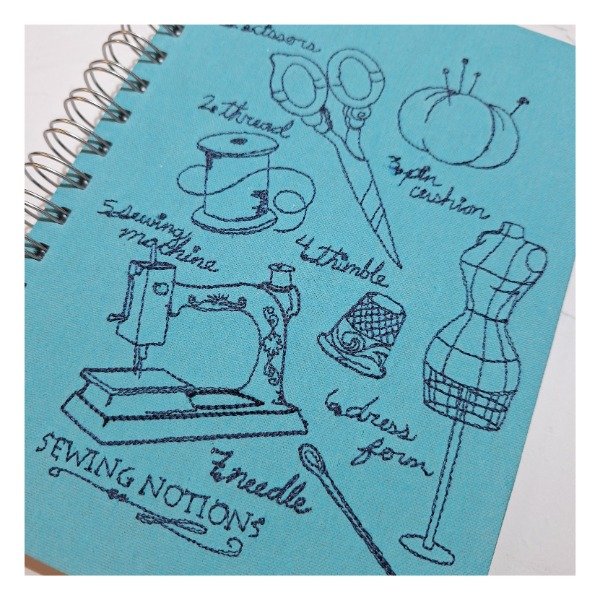 scissors
2. thread
3. pin
cushion
4. thimble
5. sewing
machine
6. dress
form
7. needle
SEWING NOTIONS